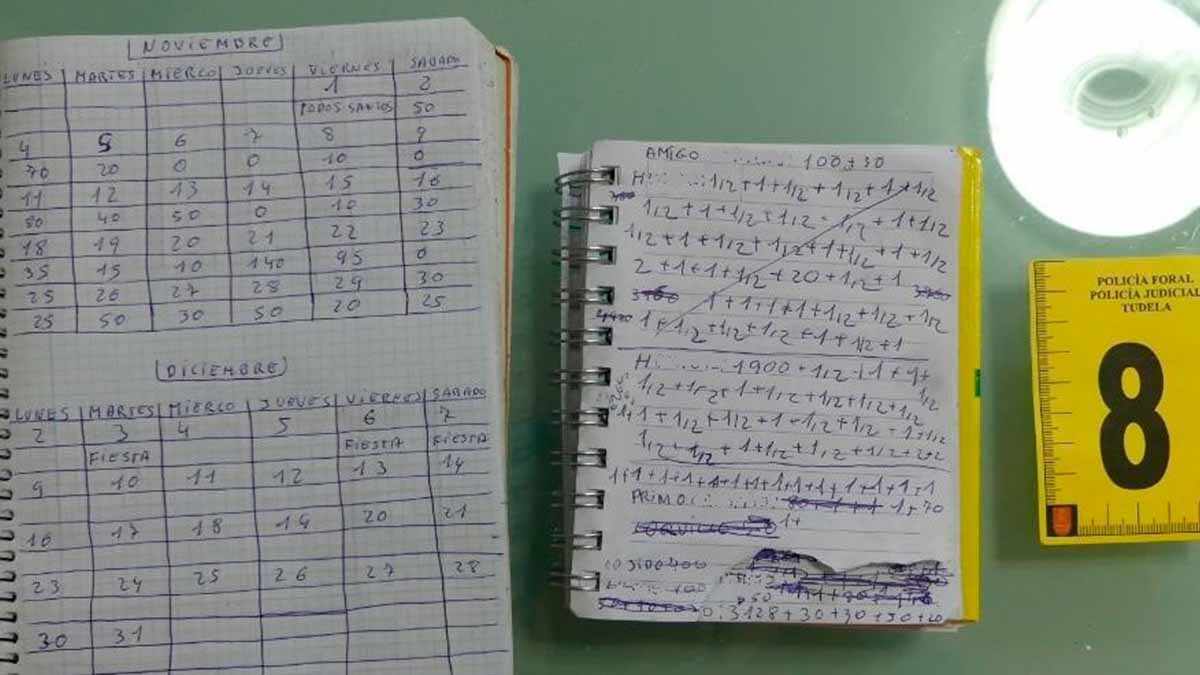 NOVIEMBRE
LUNES MARTES MIERCO JUEVES VIERNES SABADO
1 2
TODOS SANTOS 50
4 5 6 7 8 9
70 20 0 0 10 0
11 12 13 14 15 16
80 40 50 0 10 30
18 19 20 21 22 23
35 15 10 140 95 0
25 26 27 28 29 30
25 50 30 50 20 25
DICIEMBRE
LUNES MARTES MIERCO JUEVES VIERNES SABADO
2 3 4 5 6 7
FIESTA FIESTA FIESTA
9 10 11 12 13 14
16 17 18 19 20 21
23 24 25 26 27 28
30 31
AMIGO ...... 100+30
H: ..... 1/2+1+1/2+1/2+1+1/2
1/2+1+1/2+1/2+1/2+1+1/2
1/2+1+1/2+1/2+1+1/2+1+1/2
2+1+1+1/2+20+1/2+1
1+1+1+1+1/2+1/2+1/2
1+1/2+1/2+1/2+1+1/2+1
H: ..... 1900+1/2+1+9+
1/2+1/2+1+1/2+1/2+1/2+1/2 1/2
1+1+1/2+1/2+1+1/2+1/2+1+1/2
1/2+1/2+1+1/2+1/2+1/2+2+2
1+1+1+1+1+1+1+1+1+1+1+1
PRIMO: ....... 1+70
1+
50
3128+30+30+50+20
POLICÍA FORAL
POLICÍA JUDICIAL
TUDELA
8